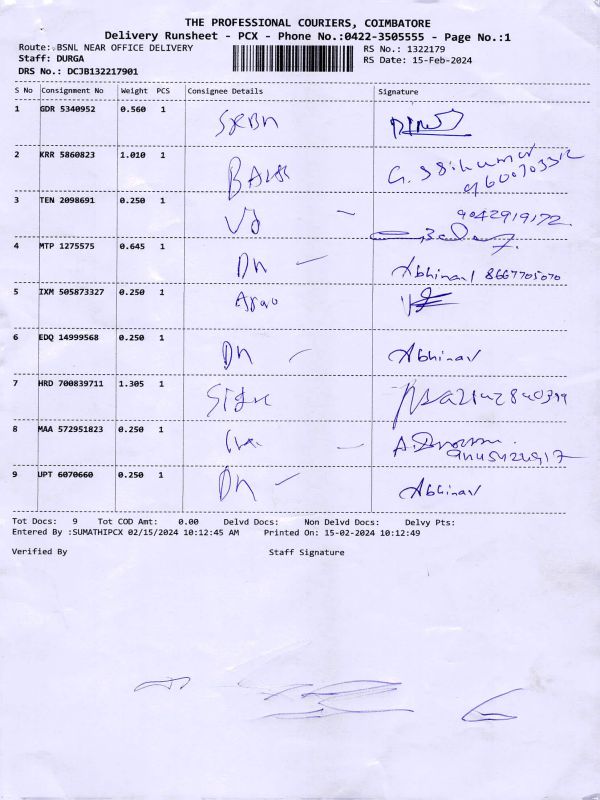 THE PROFESSIONAL COURIERS, COIMBATORE
Delivery Runsheet - PCX - Phone No.:0422-3505555 - Page No.:1
Route: BSNL NEAR OFFICE DELIVERY RS No.: 1322179
Staff: DURGA RS Date: 15-Feb-2024
DRS No.: DCJB132217901
S No Consignment No Weight PCS Consignee Details Signature
1 GDR 5340952 0.560 1
2 KRR 5860823 1.010 1
3 TEN 2098691 0.250 1 9042919172
4 MTP 1275575 0.645 1 Dn Abhinav 8667705070
5 IXM 505873327 0.250 1
6 EDQ 14999568 0.250 1 Dn Abhinav
7 HRD 700839711 1.305 1
8 MAA 572951823 0.250 1
9 UPT 6070660 0.250 1 Dn Abhinav
Tot Docs: 9 Tot COD Amt: 0.00 Delvd Docs: Non Delvd Docs: Delvy Pts:
Entered By :SUMATHIPCX 02/15/2024 10:12:45 AM Printed On: 15-02-2024 10:12:49
Verified By Staff Signature